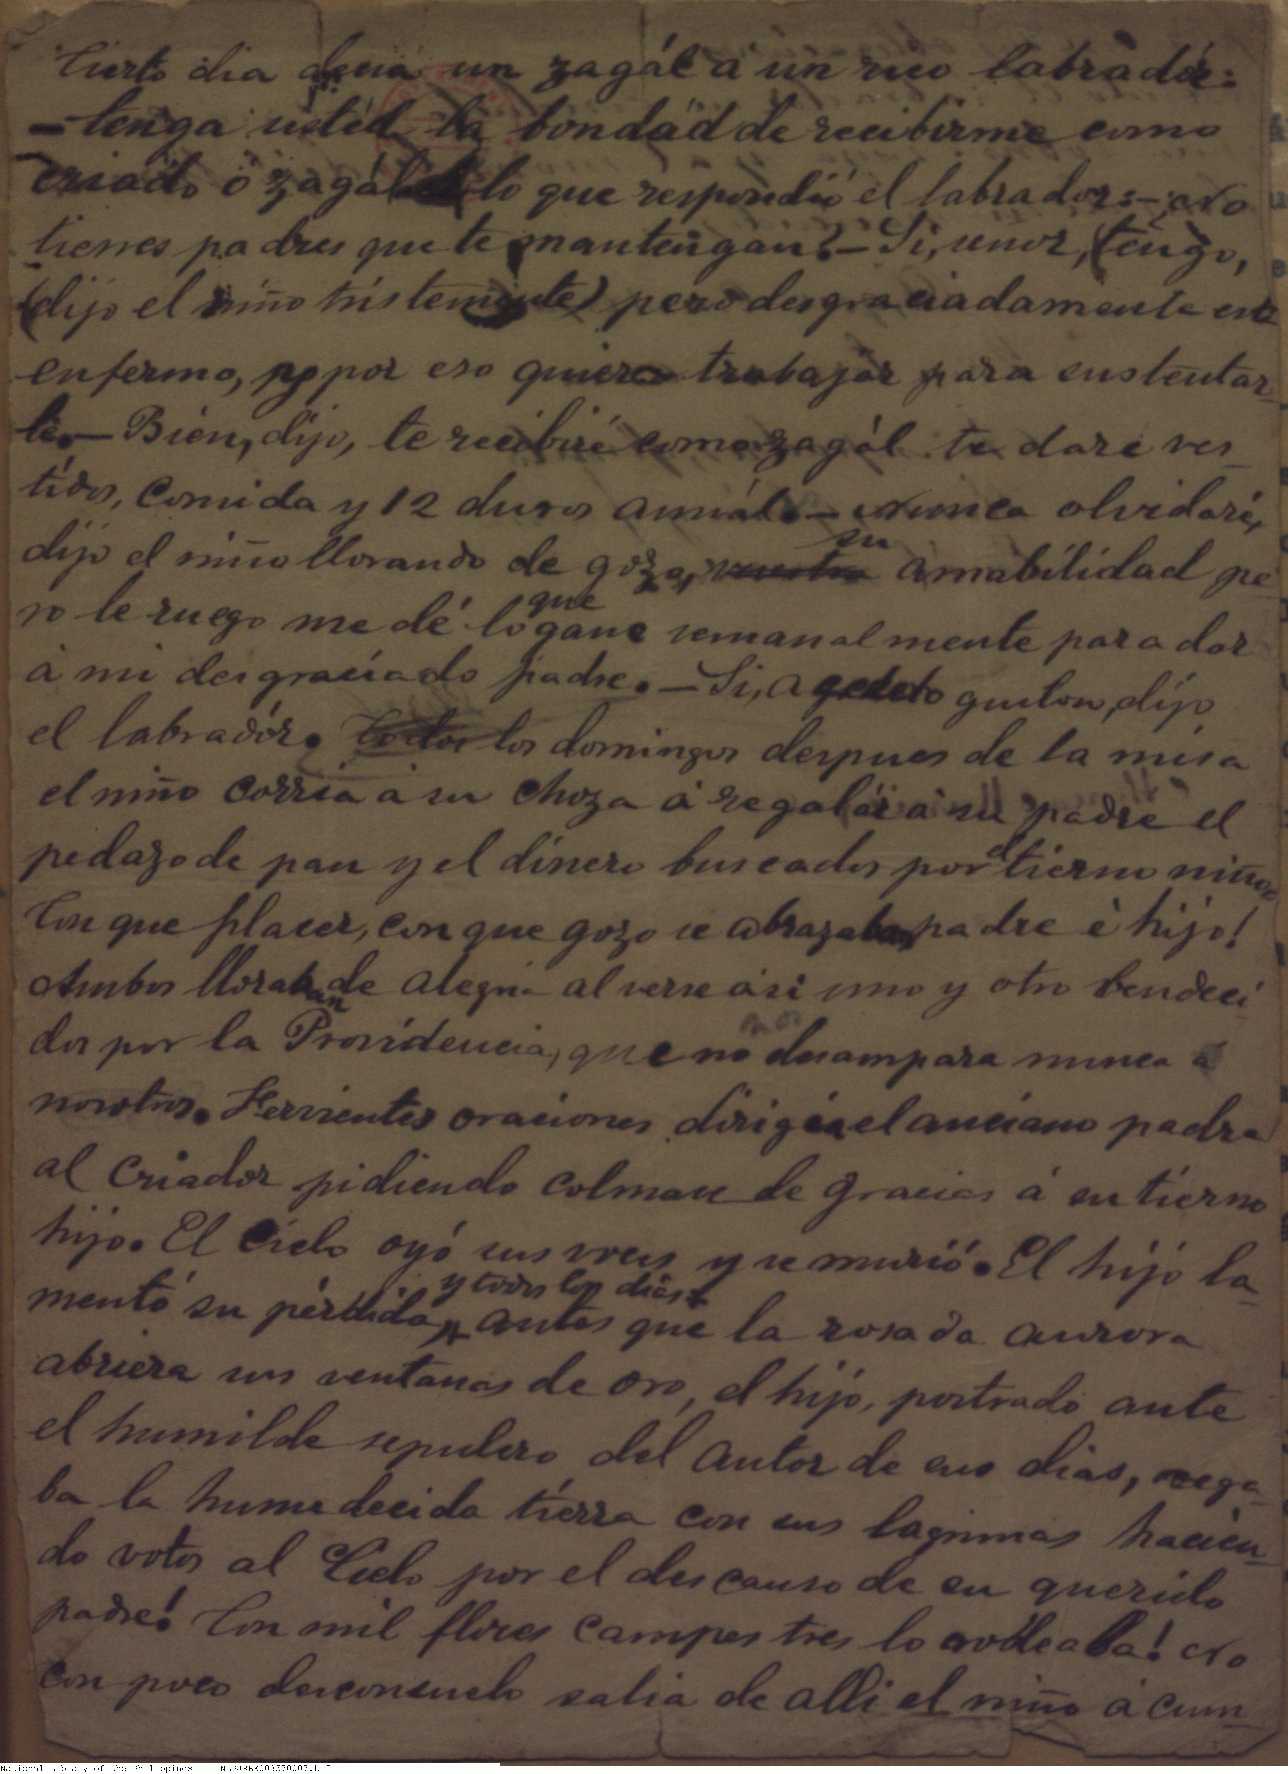 Cierto dia decia un zagál á un rico labradór:
—tenga ustéd la bondád de recibirme como
criado ó zagál lo que respondió el labrador:—¿No
tienes padres que te mantengan?—Si, señor, (tengo,
(dijo el niño tristemente) pero desgraciadamente está
enfermo, y por eso quiero trabajar para sustentar
le.—Bien, dijo, te recibiré como zagál te daré ves
tidos, comida y 12 duros anuál.—Nunca olvidaré,
dijo el niño llorando de gozo, su amabilidad pe
ro le ruego me dé lo que gane semanalmente para dar
á mi desgraciado padre.—Si, gustoso, dijo
el labradór. Todos los domingos despues de la misa
el niño corria á su choza á regalár á su padre el
pedazo de pan y el dinero buscados por el tierno niño
Con que placer, con que gozo se abrazaban padre é hijo!
Ambos lloraban de alegria al verse asi uno y otro bendeci
dos por la Providencia, que no desampara nunca á
nosotros. Fervientes oraciones dirigia el anciano padre
al Criador pidiendo colmase de gracias á su tierno
hijo. El Cielo oyó sus voces y se murió. El hijo la-
mentó su pérdida, y todos los dias antes que la rosada aurora
abriera sus ventanas de oro, el hijo, postrado ante
el humilde sepulcro del autor de sus dias, rega-
ba la humedecida tierra con sus lagrimas hacien-
do votos al Cielo por el descanso de su querido
padre! Con mil flores campestres lo rodeaba! No
con poco desconsuelo salia de alli el niño á cum-
National Library of the Philippines